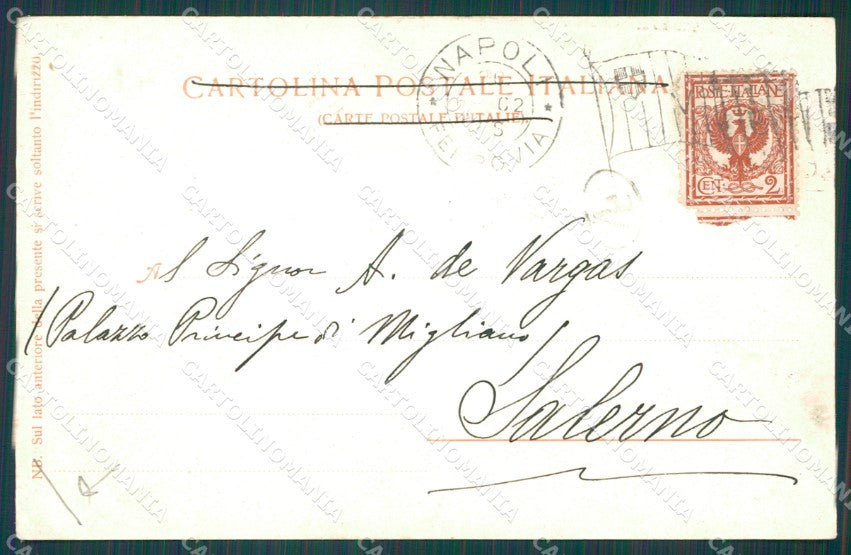 CARTOLINA POSTALE ITALIANA
(CARTE POSTALE D'ITALIE)
NAPOLI
02
FERROVIA
POSTE ITALIANE
CEN 2
Al Signor A. de Vargas
Palazzo Principe di Migliano
Salerno
NB. Sul lato anteriore della presente si scrive soltanto l'indirizzo.
CARTOLINOMANIA